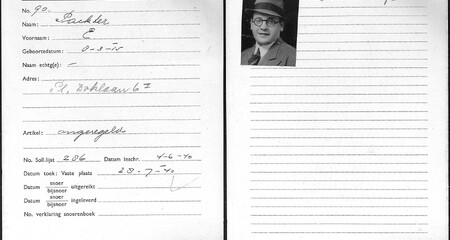 No. 90.
Naam:
Voornaam: E
Geboortedatum:
Naam echtg(e): –
Adres:
Pl. Doklaan 6 I
Artikel: ongeregeld
No. Soll.lijst 286 Datum inschr. 4-6-40
Datum toek: Vaste plaats 29-7-40
Datum snoer uitgereikt
bijsnoer
Datum snoer ingeleverd
bijsnoer
No. verklaring snoerenboek